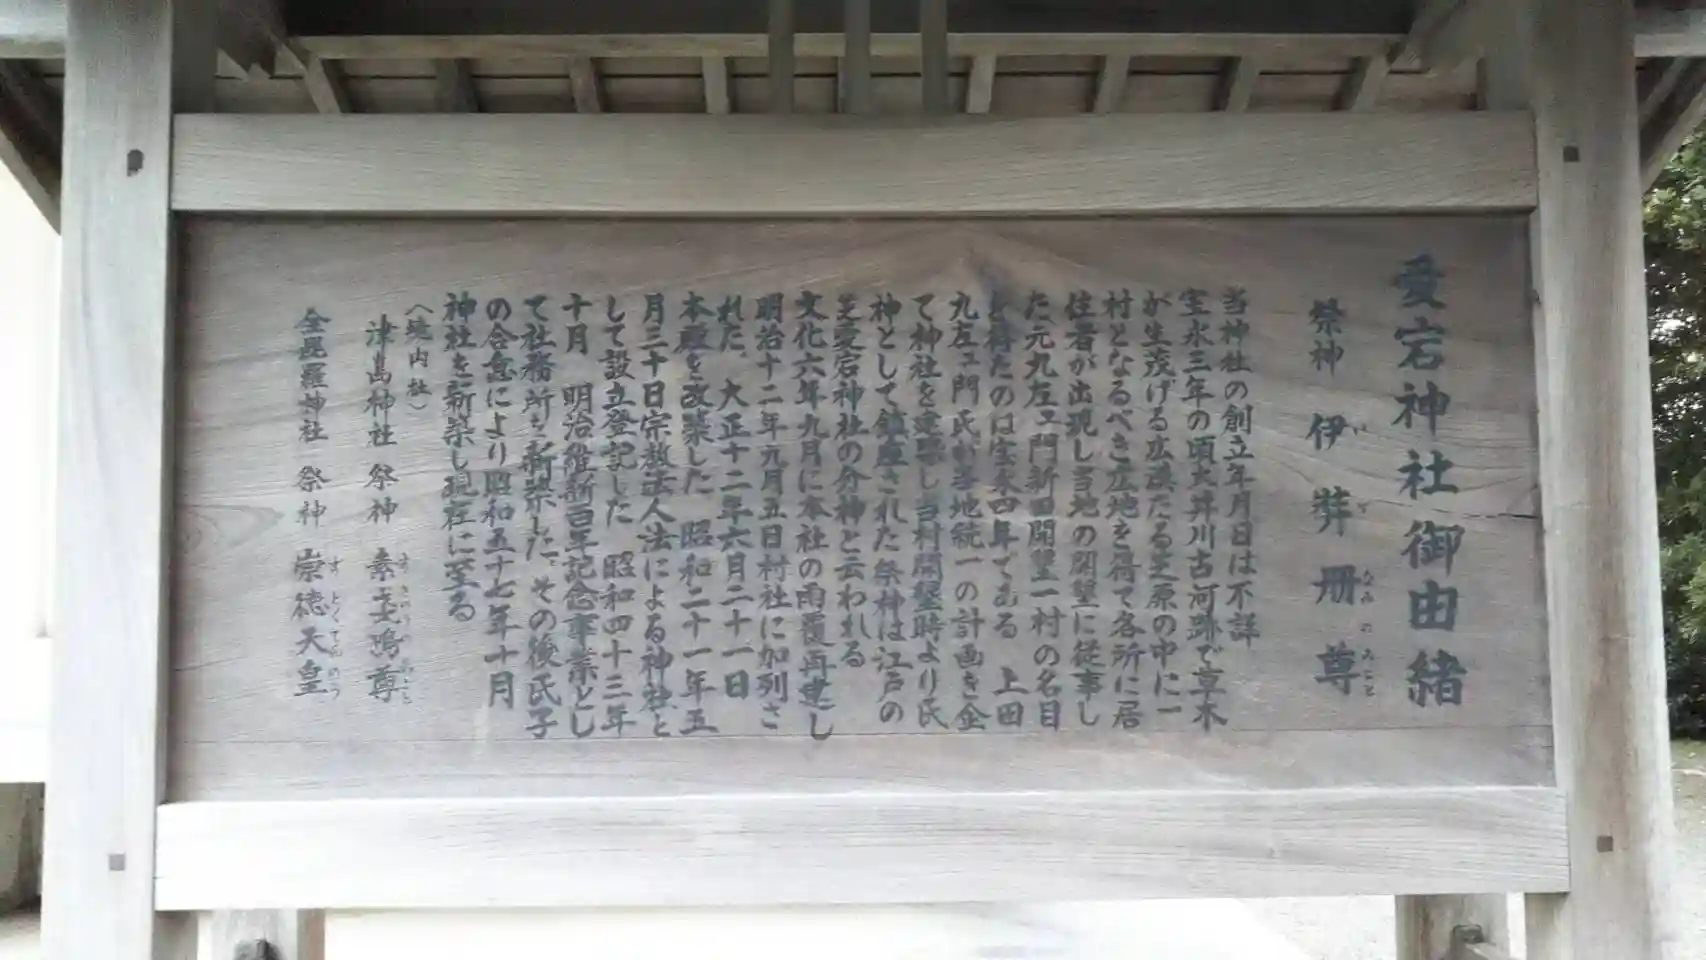 愛宕神社御由緒
祭神 伊弉册尊
当神社の創立年月日は不詳
宝永三年の頃大井川古河跡で草木
が生茂げる広漠たる芝原の中に一
村となるべき広地を得て各所に居
住者が出現し当地の開墾に従事し
た元九左ヱ門新田開墾一村の名目
を得たのは宝永四年である 上田
九左ヱ門氏が当地統一の計画を企
て神社を建築し当村開墾時より氏
神として鎮座された祭神は江戸の
芝愛宕神社の分神と云われる
文化六年九月に本社の雨覆再建し
明治十二年九月五日村社に加列さ
れた、大正十二年六月二十一日
本殿を改築した 昭和二十一年五
月三十日宗教法人法による神社と
して設立登記した 昭和四十三年
十月 明治維新百年記念事業とし
て社務所も新築した。その後氏子
の合意により昭和五十七年十月
神社を新築し現在に至る
（境内社）
津島神社 祭神 素戔嗚尊
金毘羅神社 祭神 崇徳天皇